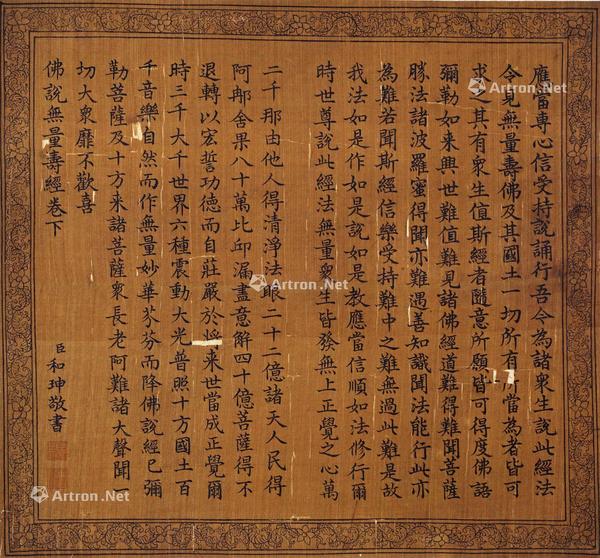 應當專心信受持說誦行吾今為諸眾生說此經法
令見無量壽佛及其國土一切所有所當為者皆可
求之其有眾生值斯經者隨意所願皆可得度佛語
彌勒如來興世難值難見諸佛經道難得難聞菩薩
勝法諸波羅蜜得聞亦難遇善知識聞法能行此亦
為難若聞斯經信樂受持難中之難無過此難是故
我法如是作如是說如是教應當信順如法修行爾
時世尊說此經法無量眾生皆發無上正覺之心萬
二千那由他人得清淨法眼二十二億諸天人民得
阿那舍果八十萬比丘漏盡意解四十億菩薩得不
退轉以宏誓功德而自莊嚴於將來世當成正覺爾
時三千大千世界六種震動大光普照十方國土百
千音樂自然而作無量妙華芬芬而降佛說經已彌
勒菩薩及十方來諸菩薩眾長老阿難諸大聲聞
切大眾靡不歡喜
佛說無量壽經卷下
臣和珅敬書
Artron.Net
Artron.Net
Artron.Net
Artron.Net
Artron.Net